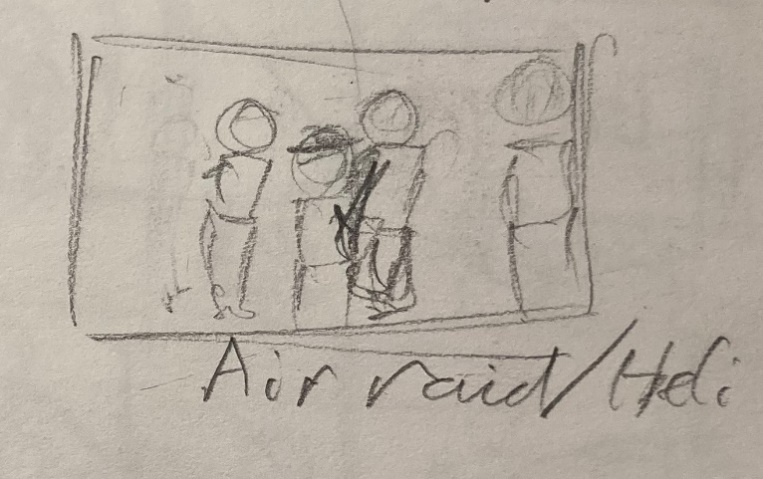 Air raid/Heli